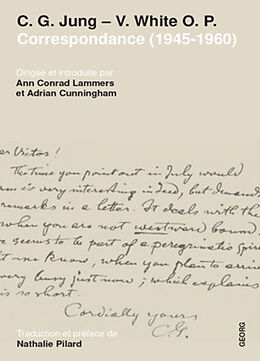 C. G. Jung – V. White O. P.
Correspondance (1945-1960)
Dirigée et introduite par
Ann Conrad Lammers
et Adrian Cunningham
Dear Victor!
The time you point out in July would
is very interesting indeed, but demands
remarks in a letter. It deals with the
when you are not westward bound.
seems to be part of a peregrinatio spiri
let me know, when you plan to arrive
very busy just now; which explains
is so short.
Cordially yours
C.G.
Traduction et préface de
Nathalie Pilard
GEORG